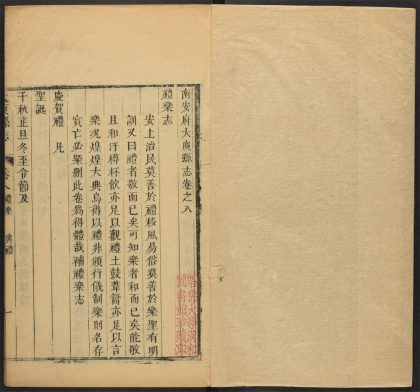 南安府大庾縣志卷之八
禮樂志
安上治民莫善於禮移風易俗莫善於樂聖有明
訓又曰禮者敬而已矣可知樂者和而已矣能敬
且和汙樽杯飲亦足以觀禮土鼓葦籥亦足以言
樂况煌煌大典烏得以禮非頒行儀制樂則名存
實亡必樂刪此卷爲得體哉補禮樂志
慶賀禮 凡
聖誕
千秋正旦冬至令節及
禮樂 典禮 一